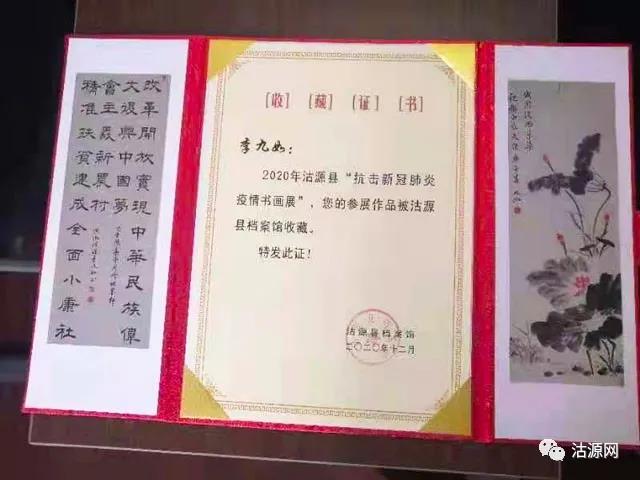 [收] [藏] [证] [书]
李九如：
2020年沽源县“抗击新冠肺炎
疫情书画展”，您的参展作品被沽源
县档案馆收藏。
特发此证！
沽源县档案馆
二〇二〇年十二月
改革开放实现中华民族伟
大复兴中国梦
会主义新农村
精准扶贫建成全面小康社
沽源网